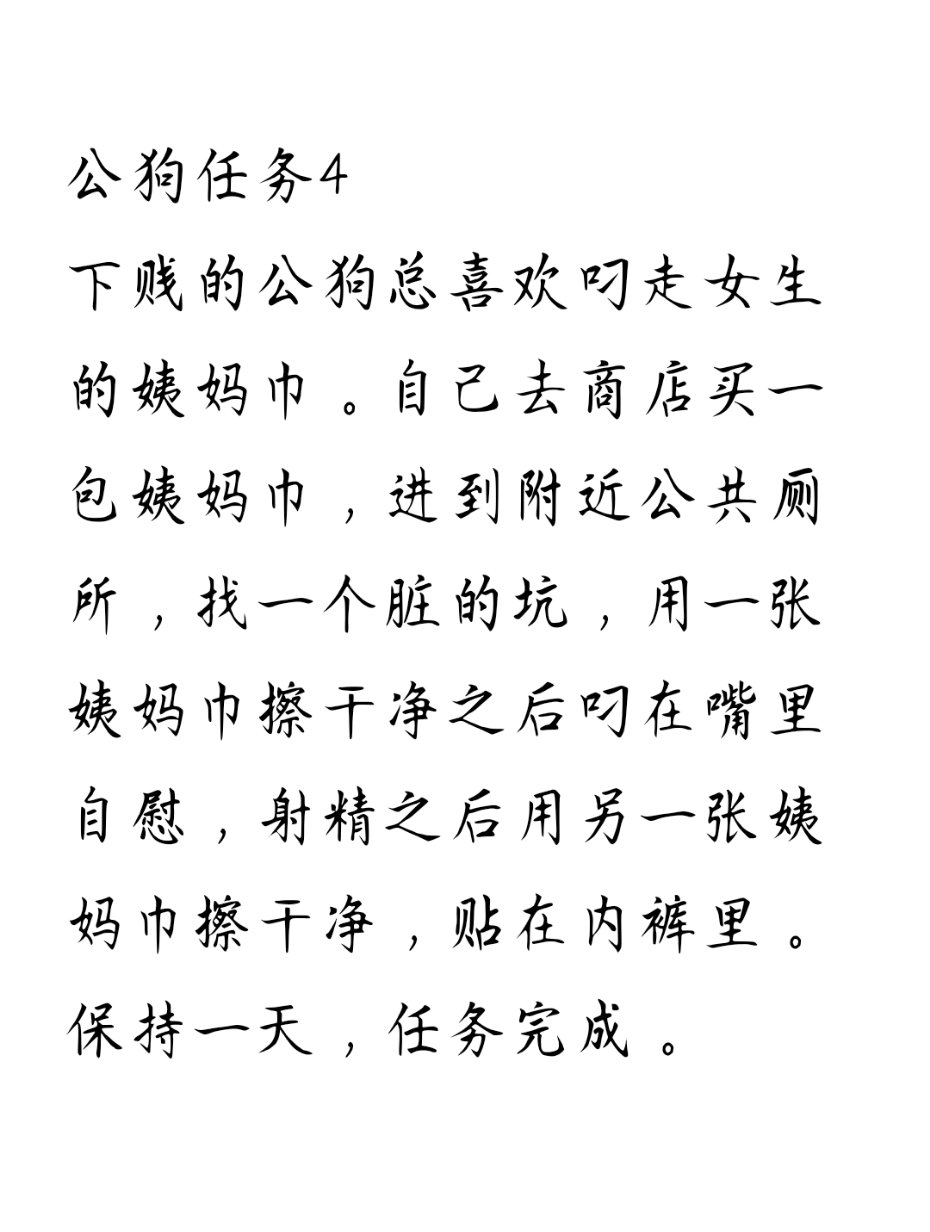 公狗任务4
下贱的公狗总喜欢叼走女生
的姨妈巾。自己去商店买一
包姨妈巾，进到附近公共厕
所，找一个脏的坑，用一张
姨妈巾擦干净之后叼在嘴里
自慰，射精之后用另一张姨
妈巾擦干净，贴在内裤里。
保持一天，任务完成。